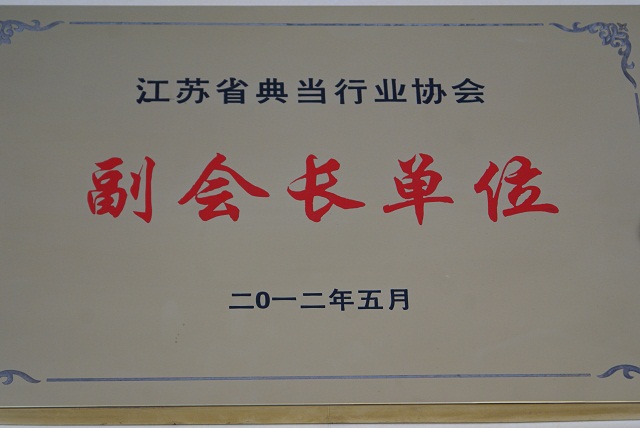 江苏省典当行业协会
副会长单位
二0一二年五月